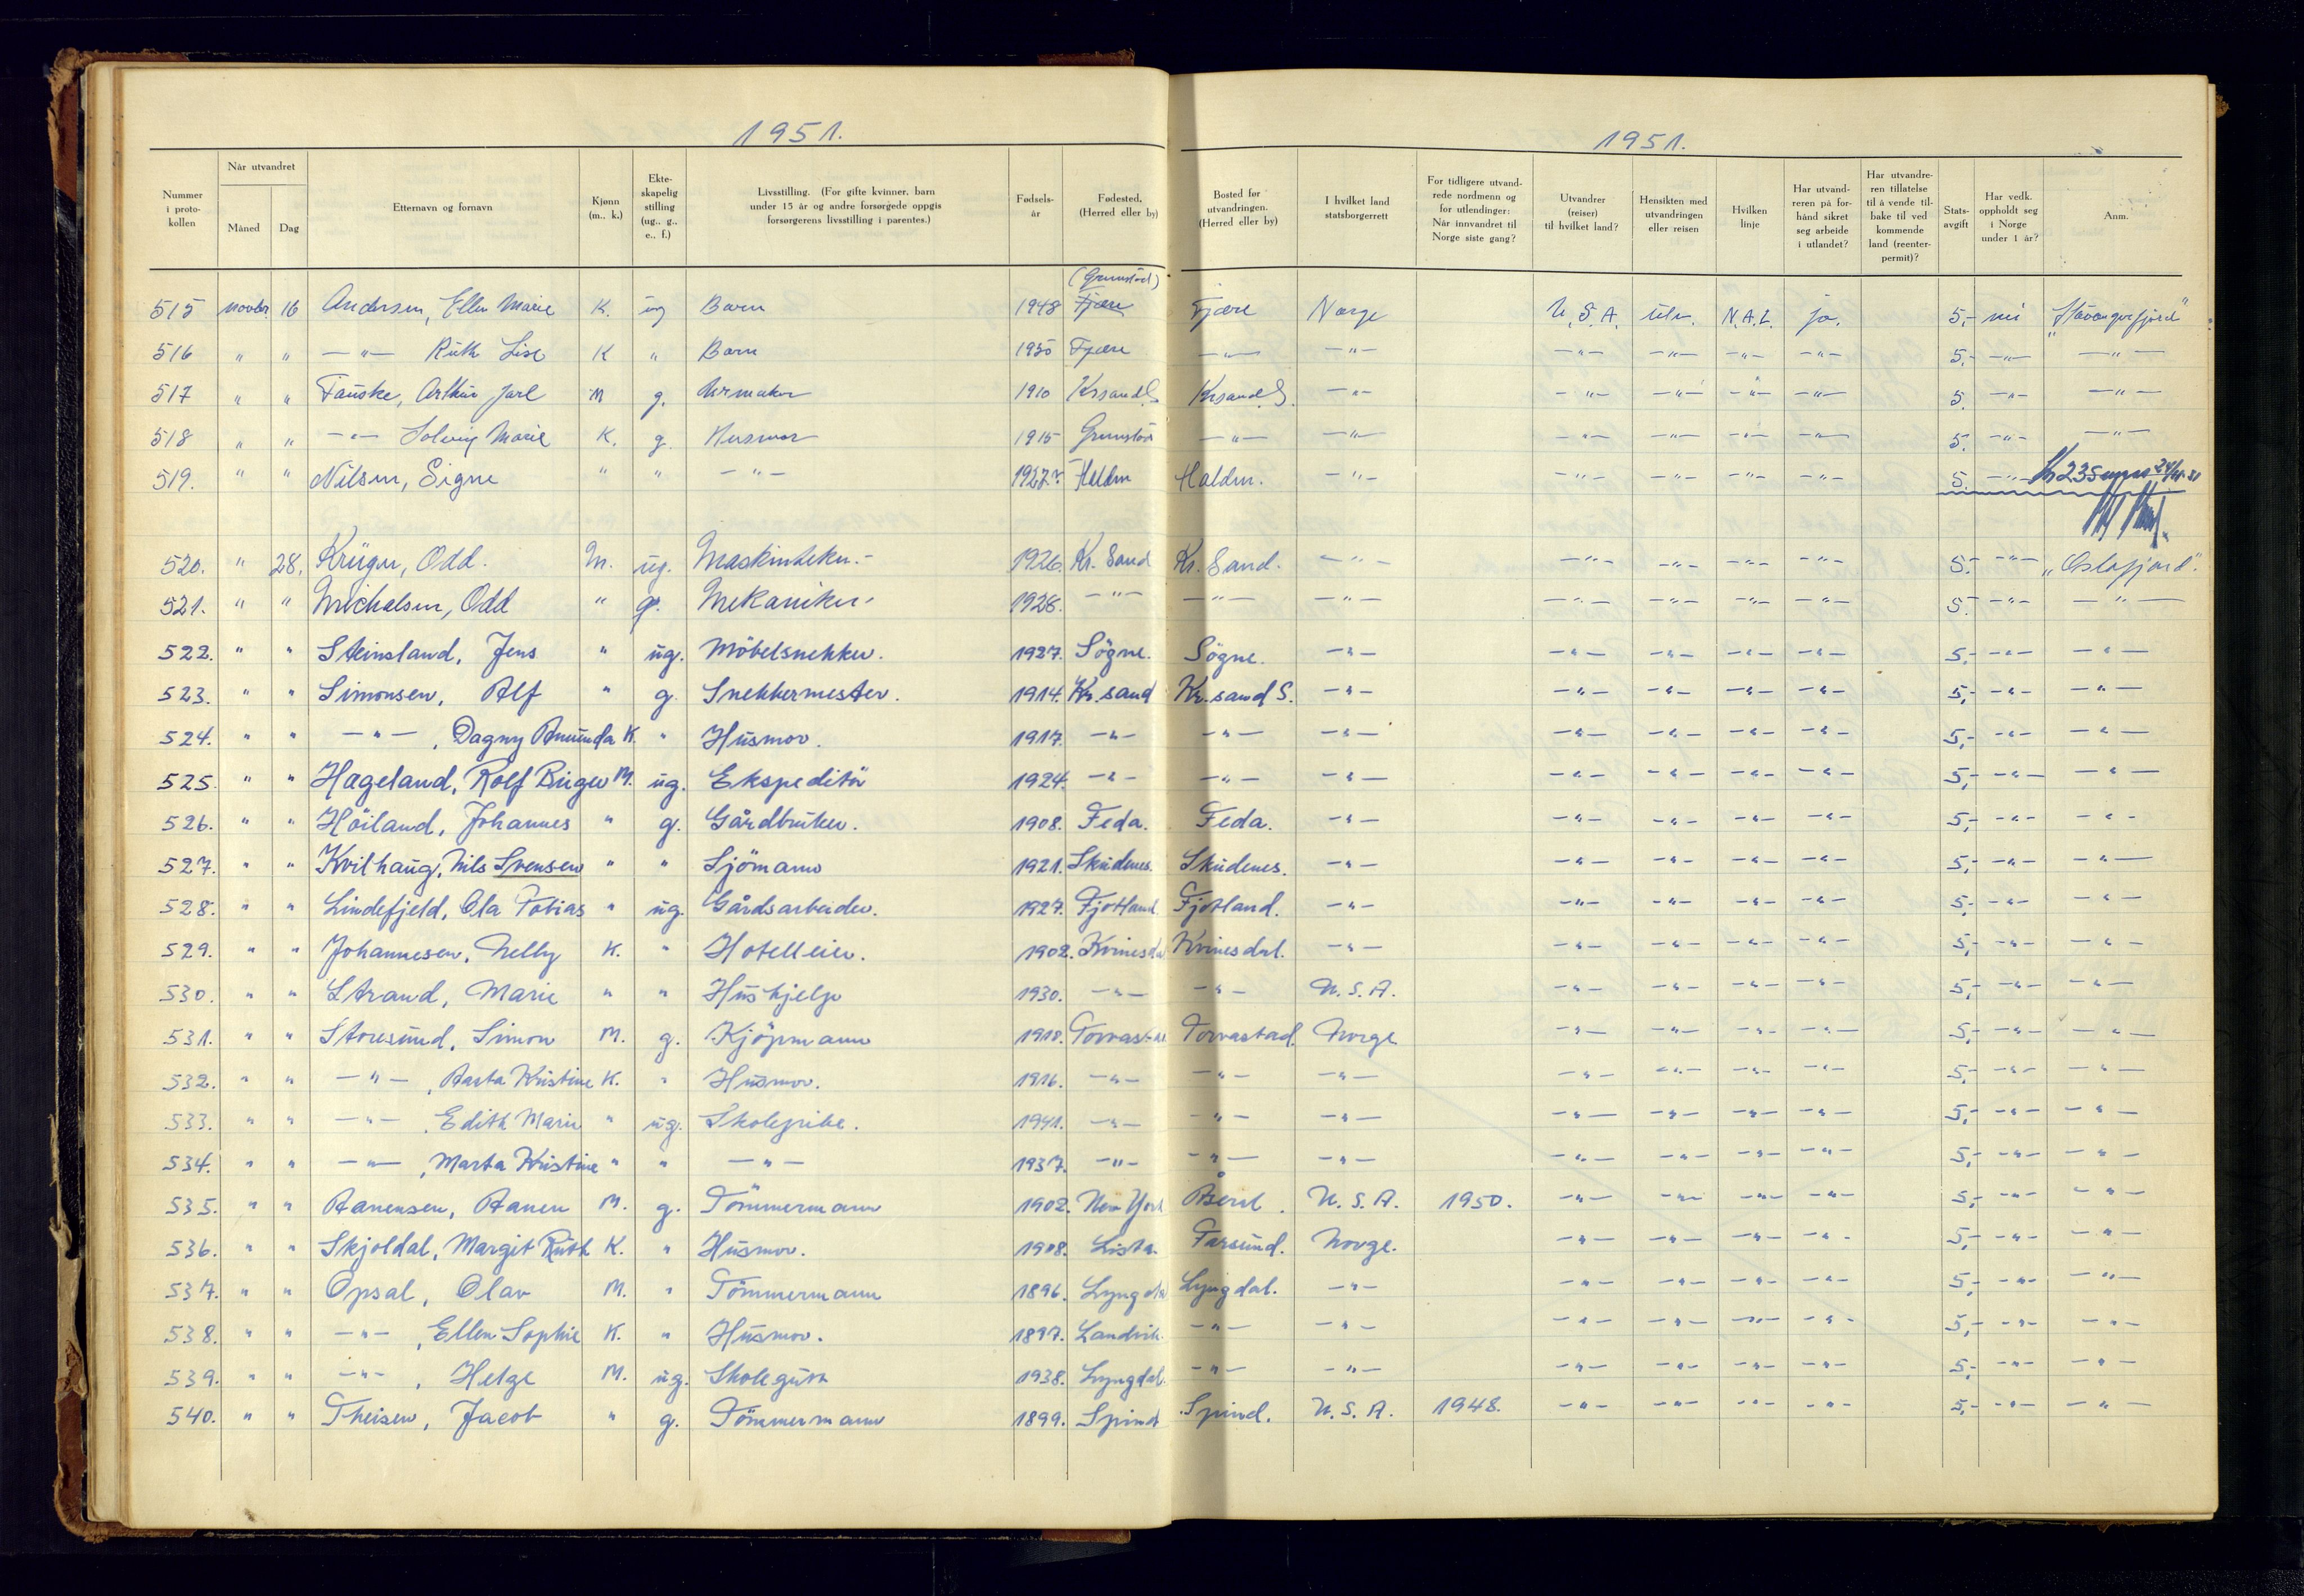 1951.
1951.
Nummer i proto-kollen | Når utvandret Måned | Dag | Etternavn og fornavn | Kjønn (m., k.) | Ekte-skapelig stilling (ug., g., e., f.) | Livsstilling. (For gifte kvinner, barn under 15 år og andre forsørgede oppgis forsørgerens livsstilling i parentes.) | Fødsels-år | Fødested, (Herred eller by) | Bosted før utvandringen. (Herred eller by) | I hvilket land statsborgerrett | For tidligere utvand-rede nordmenn og for utlendinger: Når innvandret til Norge siste gang? | Utvandrer (reiser) til hvilket land? | Hensikten med utvandringen eller reisen | Hvilken linje | Har utvand-reren på for-hånd sikret seg arbeide i utlandet? | Har utvandre-ren tillatelse til å vende til-bake til ved kommende land (reenter-permit)? | Stats-avgift | Har vedk. oppholdt seg i Norge under 1 år? | Anm.
515 novbr. 16 Andersen, Ellen Marie K. ug Barn 1948 (Grimstad) Fjære Fjære Norge U.S.A. utv. N.A.L. ja. 5,- nei "Stavangerfjord"
516 " " —"— Ruth Lise K " Barn 1950 Fjære —"— —"— —"— —"— —"— —"— 5,- —"— —"—
517 " " Fauske, Arthur Jarl M g. Urmaker 1910 Krsand S Krsand S. —"— —"— —"— —"— —"— 5. —"— —"—
518 " " —"— Solveig Marie K. g. Husmor 1915 Grimstad —"— —"— —"— —"— —"— —"— 5. —"— —"—
519. " " Nilsen, Signe " " —"— 1927 Halden Halden. —"— —"— —"— —"— —"— 5. —"— Kr 235
520. " 28. Krüger, Odd. M. ug. Maskintekn.- 1926. Kr. Sand Kr. Sand. —"— —"— —"— —"— —"— 5.- —"— "Oslofjord".
521. " " Michalsen, Odd " g. Mekaniker 1928. —"— —"— —"— —"— —"— —"— —"— 5.- —"— —"—
522. " " Steinsland, Jens " ug. Möbelsnekker. 1927. Sögne. Sögne. —"— —"— —"— —"— —"— 5,- —"— —"—
523. " " Simonsen, Alf " g. Snekkermester. 1914. Kr.sand Kr.sand S. —"— —"— —"— —"— —"— 5,- —"— —"—
524. " " —"—, Dagny Amunda K. " Husmor. 1917. —"— —"— —"— —"— —"— —"— —"— 5,- —"— —"—
525. " " Hageland, Rolf Birger M. ug. Ekspeditör 1924. —"— —"— —"— —"— —"— —"— —"— 5,- —"— —"—
526. " " Höiland, Johannes " g. Gårdbruker. 1908. Feda. Feda. —"— —"— —"— —"— —"— 5,- —"— —"—
527. " " Kvilhaug, Nils Svensen " " Sjömann 1921. Skudenes. Skudenes. —"— —"— —"— —"— —"— 5,- —"— —"—
528. " " Lindefjeld, Ola Tobias " ug. Gårdsarbeider. 1927. Fjotland Fjotland. —"— —"— —"— —"— —"— 5,- —"— —"—
529. " " Johannesen, Nelly K. " Hotelleier. 1902. Kvinesdal Kvinesdal. —"— —"— —"— —"— —"— 5,- —"— —"—
530. " " Strand, Marie " " Hushjelp 1930. —"— —"— U.S.A. —"— —"— —"— —"— 5,- —"— —"—
531. " " Storesund, Simon M. g. Kjöpmann 1910. Torvastad Torvastad. Norge —"— —"— —"— —"— 5,- —"— —"—
532. " " —"—, Aasta Kristine K. " Husmor. 1916. —"— —"— —"— —"— —"— —"— —"— 5,- —"— —"—
533. " " —"—, Edith Marie " ug. Skolepike. 1941. —"— —"— —"— —"— —"— —"— —"— 5,- —"— —"—
534. " " —"—, Marta Kristine " " —"— 1937. —"— —"— —"— —"— —"— —"— —"— 5,- —"— —"—
535. " " Aanensen, Aanen M. g. Tömmermann 1902. New York Åseral. U.S.A. 1950. —"— —"— —"— —"— 5,- —"— —"—
536. " " Skjoldal, Margit Ruth K. " Husmor. 1908. Lista. Farsund. Norge. —"— —"— —"— —"— 5,- —"— —"—
537. " " Opsal, Olav M. " Tömmermann 1896. Lyngdal Lyngdal. —"— —"— —"— —"— —"— 5,- —"— —"—
538. " " —"—, Ellen Sophie K. " Husmor. 1897. Landvik. —"— —"— —"— —"— —"— —"— 5,- —"— —"—
539. " " —"—, Helge M. ug. Skolegutt 1938. Lyngdal. —"— —"— —"— —"— —"— —"— 5,- —"— —"—
540. " " Theisen, Jacob " g. Tömmermann 1899. Spind Spind. U.S.A. 1948. —"— —"— —"— —"— 5,- —"— —"—